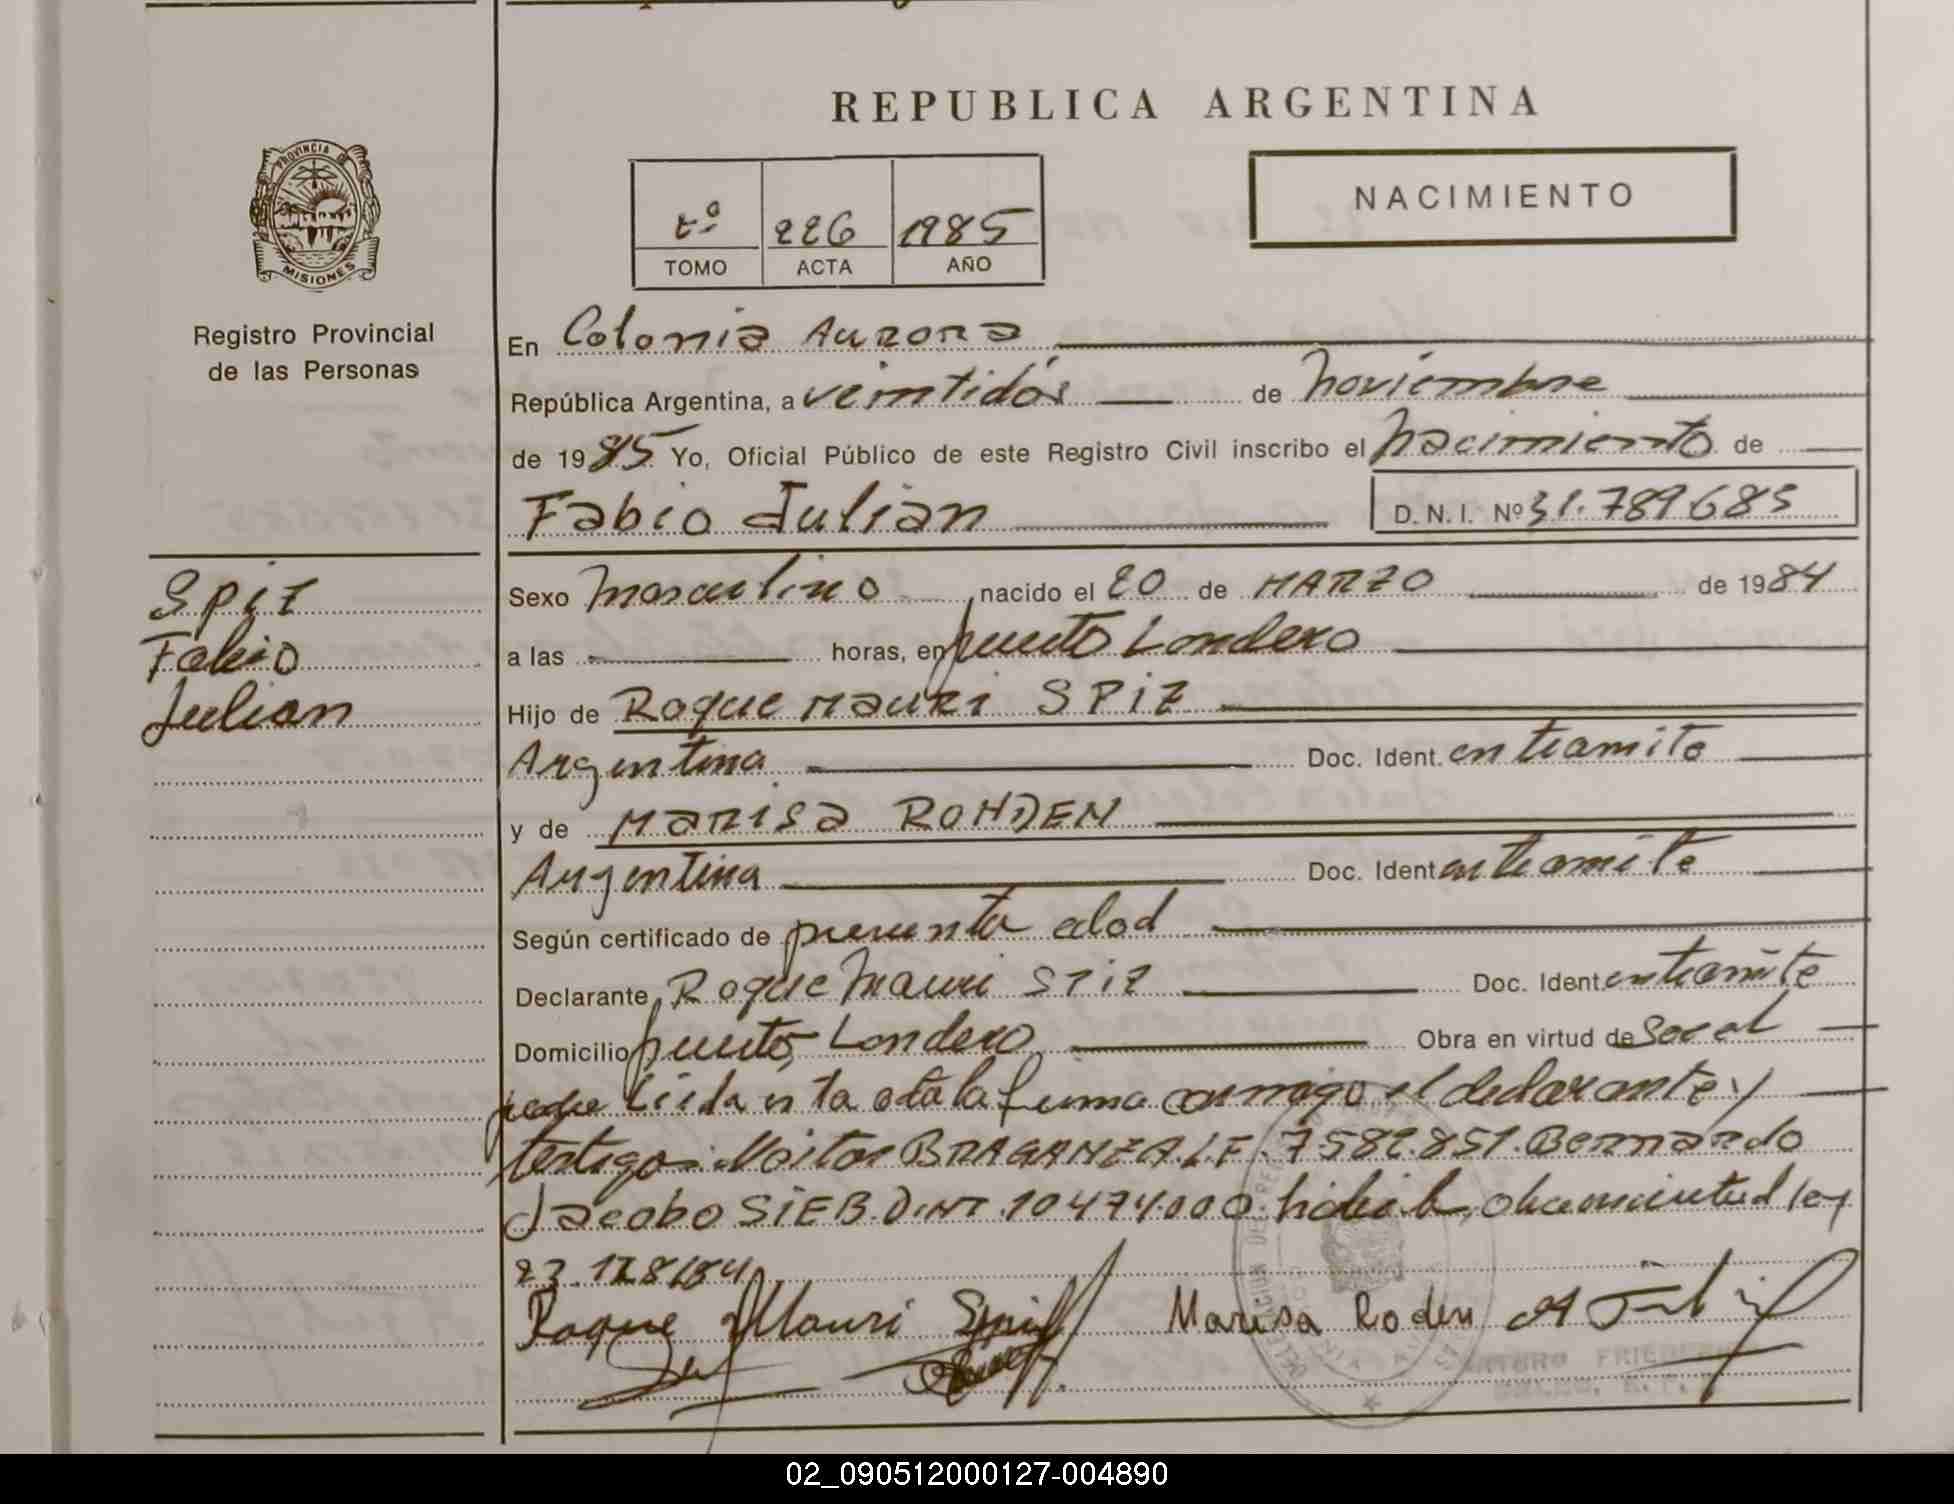 REPUBLICA ARGENTINA
PROVINCIA DE
MISIONES
Registro Provincial
de las Personas
tº 226 1985
TOMO ACTA AÑO
NACIMIENTO
En Colonia Aurora
República Argentina, a veintidós de noviembre
de 1985 Yo, Oficial Público de este Registro Civil inscribo el nacimiento de
Fabio Julian D.N.I. Nº 31.789685
Spiz
Fabio
Julian
Sexo masculino nacido el 20 de MARZO de 1984
a las horas, en puerto Londero
Hijo de Roque Mauri SPIZ
Argentina Doc. Ident. en tramite
y de Marisa ROHDEN
Argentina Doc. Ident en tramite
Según certificado de presenta
Declarante Roque Mauri SPIZ Doc. Ident. en tramite
Domicilio puerto Londero Obra en virtud de
padre Leida esta la firma conmigo el declarante y
testigos: BRAGANZA L.E. 7582.851. Bernardo
Jacobo SIEB D.N.I. 10474.000 ley
23.128/84
Roque Mauri Marisa Roden
ARTURO
02_090512000127-004890